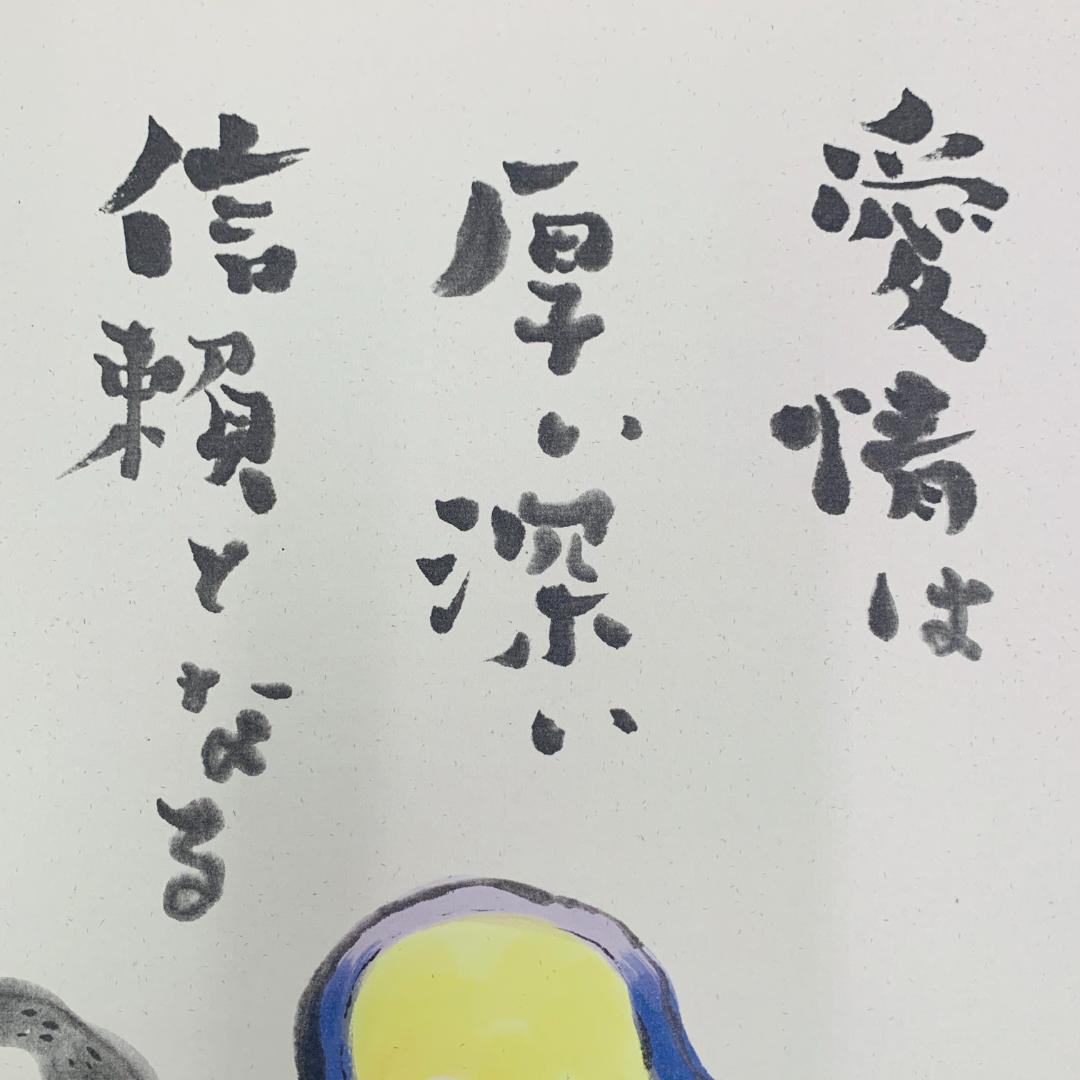 愛情は
厚い深い
信頼となる